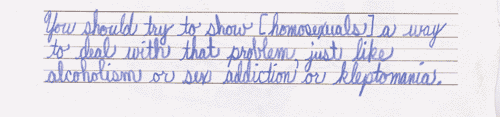 You should try to show [homosexuals] a way
to deal with that problem, just like
alcoholism or sex addiction or kleptomania.